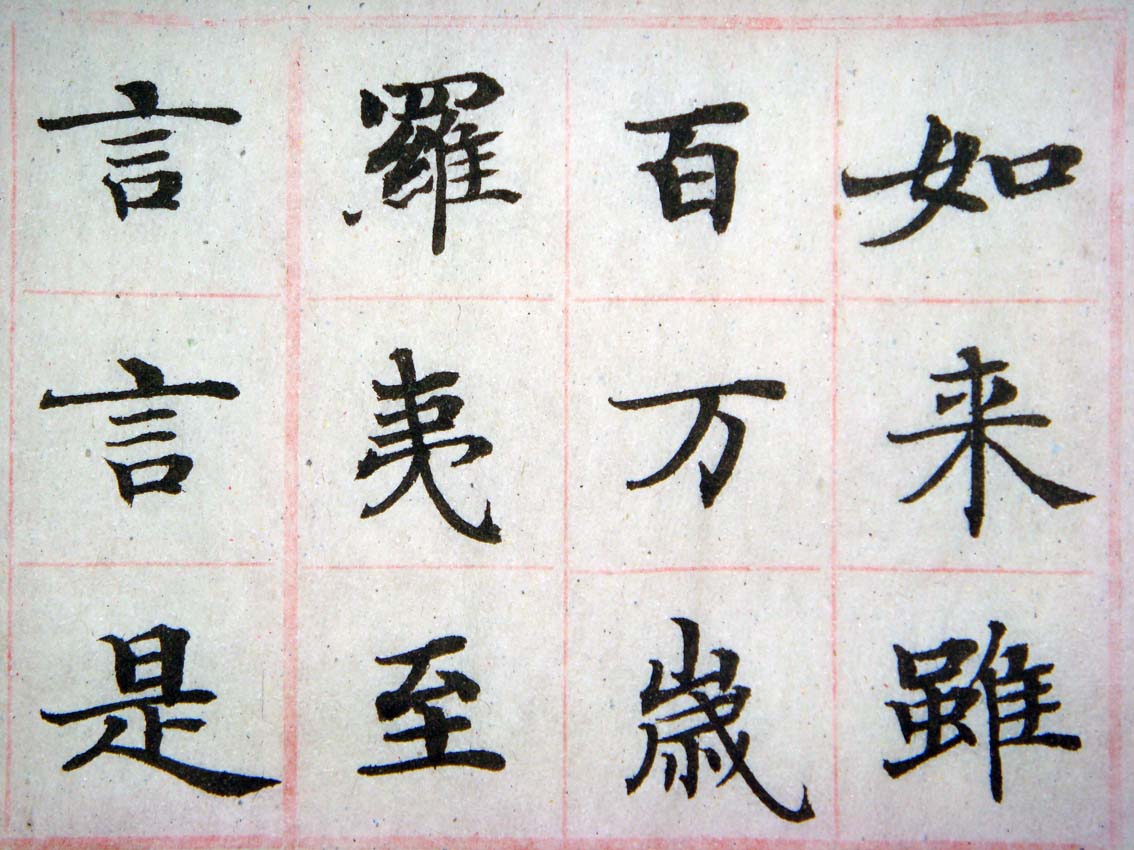 如来雖
百万歳
羅夷至
言言是